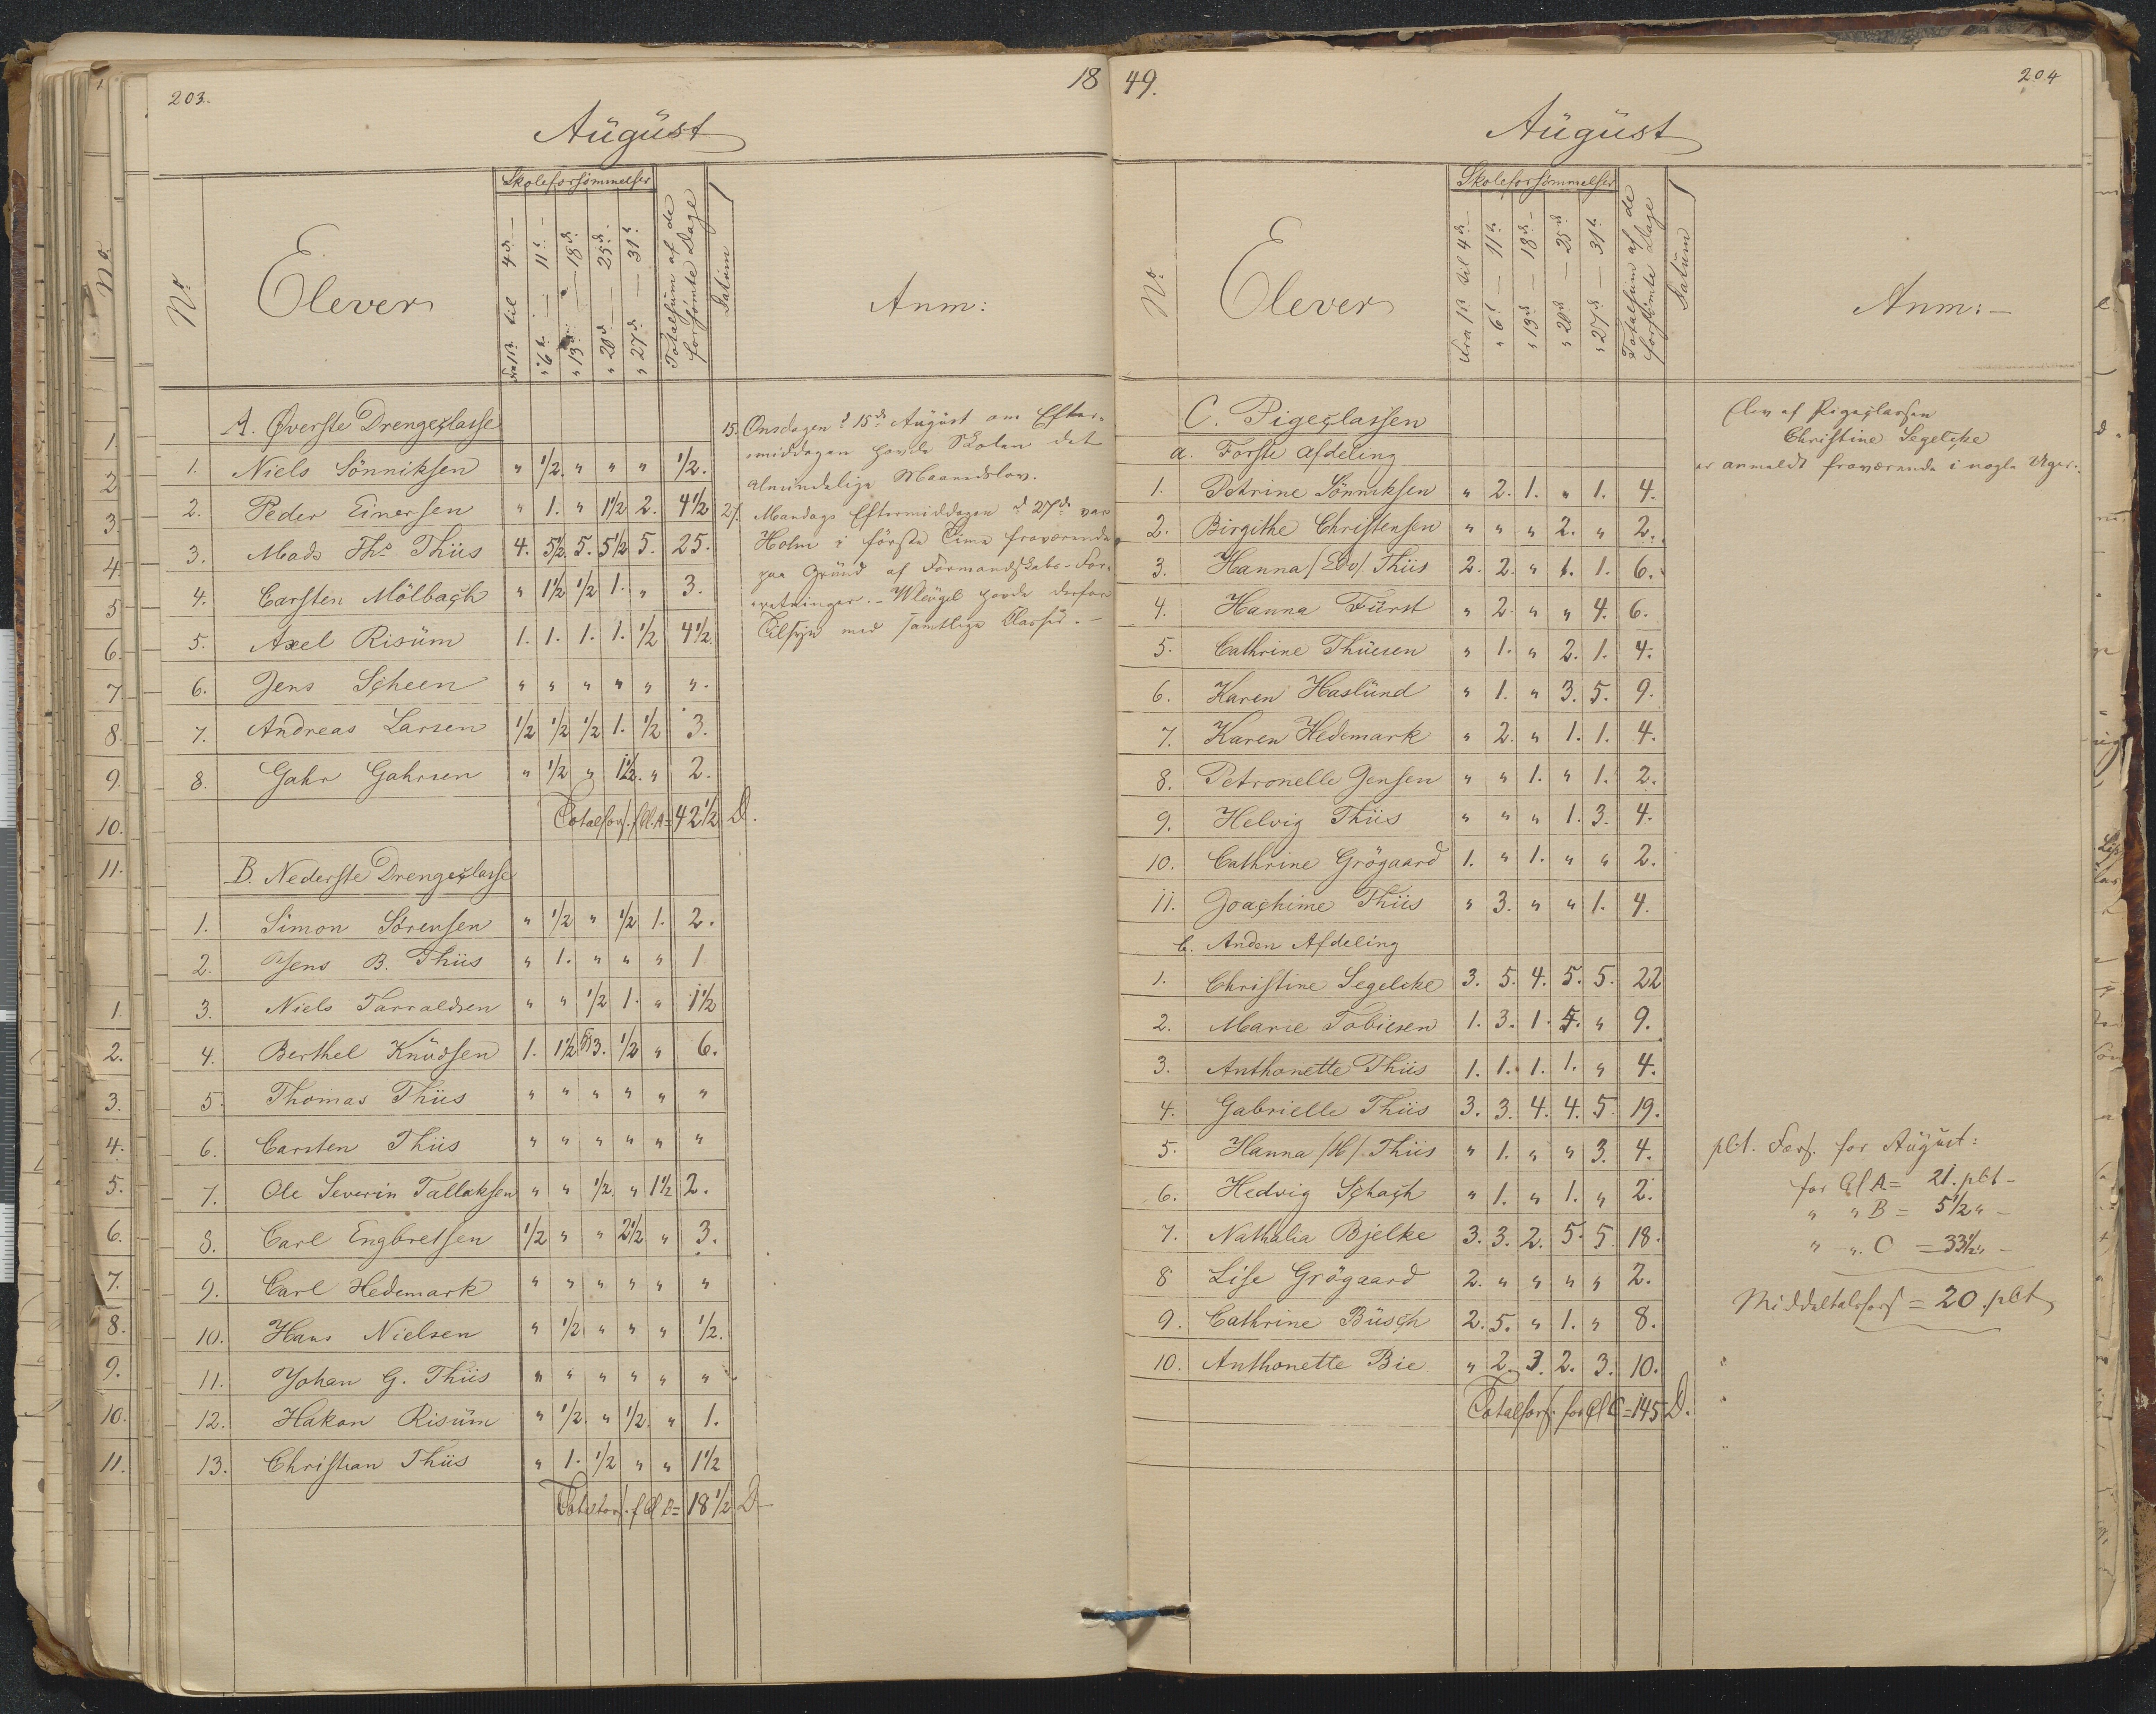 203.
18
August
No
Elever
Skoleforsömmelser
Fra 1ste til 4de
" 6te — 11te
" 13de — 18de
" 20de — 25de
" 27de — 31te
Totalsum af de forsömte Dage
Datum
Anm:
A. Øverste Drengeclasse
1. Niels Sönniksen " 1/2. " " " 1/2.
2. Peder Einersen " 1. " 1 1/2 2. 4 1/2
3. Mads Ths Thiis 4. 5 1/2. 5. 5 1/2 5. 25.
4. Carsten Mölbach " 1 1/2 1/2 1. " 3.
5. Axel Risüm 1. 1. 1. 1. 1/2 4 1/2.
6. Jens Scheen " " " " " ".
7. Andreas Larsen 1/2 1/2 1/2 1. 1/2 3.
8. Gahr Gahrsen " 1/2 " 1 1/2. " 2.
Totalfors. f Cl. A = 42 1/2 D.
B. Nederste Drengeclasse
1. Simon Sörensen " 1/2 " 1/2 1. 2.
2. Jens B. Thiis " 1. " " " 1
3. Niels Tarraldsen " " 1/2 1. " 1 1/2
4. Berthel Knudsen 1. 1 1/2 3. 1/2 " 6.
5. Thomas Thiis " " " " " "
6. Carsten Thiis " " " " " "
7. Ole Severin Tallaksen " " 1/2. " 1 1/2 2.
8. Carl Engbretsen 1/2 " " 2 1/2 " 3.
9. Carl Hedemark " " " " " "
10. Hans Nielsen " 1/2 " " " 1/2.
11. Johan G. Thiis " " " " " "
12. Hakon Risüm " 1/2 " 1/2. " 1.
13. Christian Thiis " 1. 1/2 " " 1 1/2
Totalfors. f Cl B = 18 1/2 D
15. Onsdagen d 15de August om Efter-
middagen havde Skolen det
almindelige Maanedslov.
27. Mandags Eftermiddagen d 27de var
Holm i förste Time fraværende
paa Grund af Formandskabs-For-
retninger. - Wleügel havde derfor
Tilsyn med samtlige Classer. -
49.
204
August
No
Elever
Skoleforsömmelser
Fra 1ste til 4de
" 6te — 11te
" 13de — 18de
" 20de — 25de
" 27de — 31te
Totalsum af de forsömte Dage
Datum
Anm: -
C. Pigeclassen
a. Förste Afdeling
1. Petrine Sönniksen " 2. 1. " 1. 4.
2. Birgithe Christensen " " " 2. " 2.
3. Hanna /Edv/ Thiis 2. 2. " 1. 1. 6.
4. Hanna Fürst " 2. " " 4. 6.
5. Cathrine Thuesen " 1. " 2. 1. 4.
6. Karen Haslund " 1. " 3. 5. 9.
7. Karen Hedemark " 2. " 1. 1. 4.
8. Petronelle Jensen " " 1. " 1. 2.
9. Helvig Thiis " " " 1. 3. 4.
10. Cathrine Grögaard 1. " 1. " " 2.
11. Joachime Thiis " 3. " " 1. 4.
b. Anden Afdeling
1. Christine Segelcke 3. 5. 4. 5. 5. 22
2. Marie Tobiesen 1. 3. 1. 4. " 9.
3. Anthonette Thiis 1. 1. 1. 1. " 4.
4. Gabrielle Thiis 3. 3. 4. 4. 5. 19.
5. Hanna /H/. Thiis " 1. " " 3. 4.
6. Hedvig Schach " 1. " 1. " 2.
7. Nathalia Bjelke 3. 3. 2. 5. 5. 18.
8 Lise Grögaard 2. " " " " 2.
9. Cathrine Büsch 2. 5. " 1. " 8.
10. Anthonette Bie " 2. 3. 2. 3. 10.
Totalfors. for Cl C = 145 D.
Elev af Pigeclassen
Christine Segelcke
er anmeldt fraværende i nogle Uger.
pCt. Fors. for August:
for Cl A = 21. pCt -
" " B = 5 1/2 " -
" ". C = 33 1/2 " -
Middeltalsfors = 20. pCt